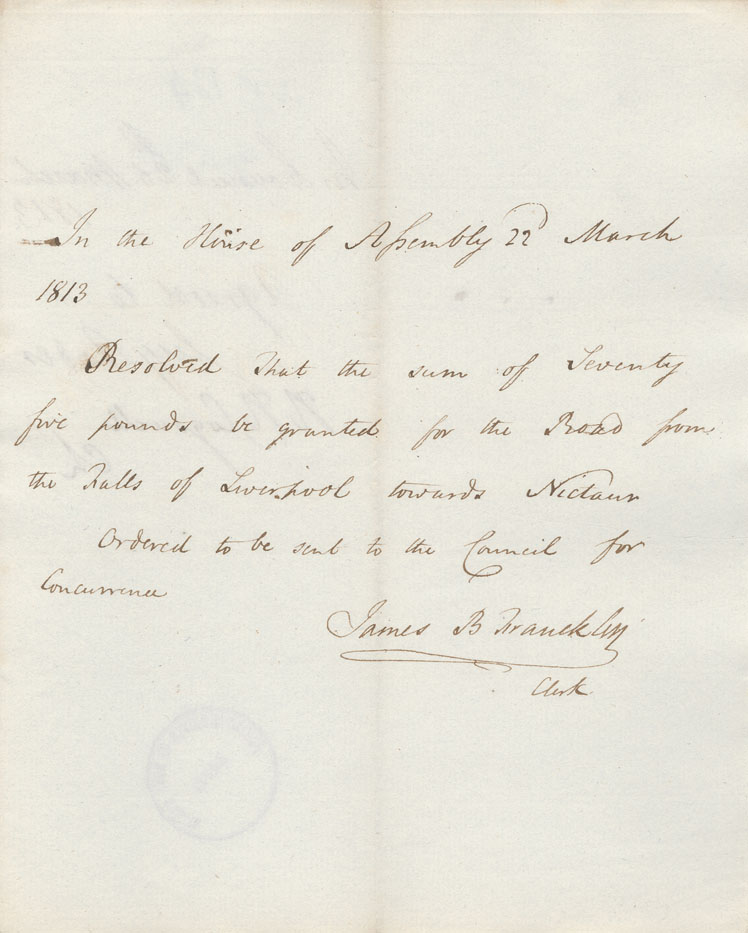 In the House of Assembly 22d March
1813
Resolved that the sum of Seventy
five pounds be granted for the Road from
the Falls of Liverpool towards Nictaux
Ordered to be sent to the Council for
Concurrence
James B Francklin
Clerk